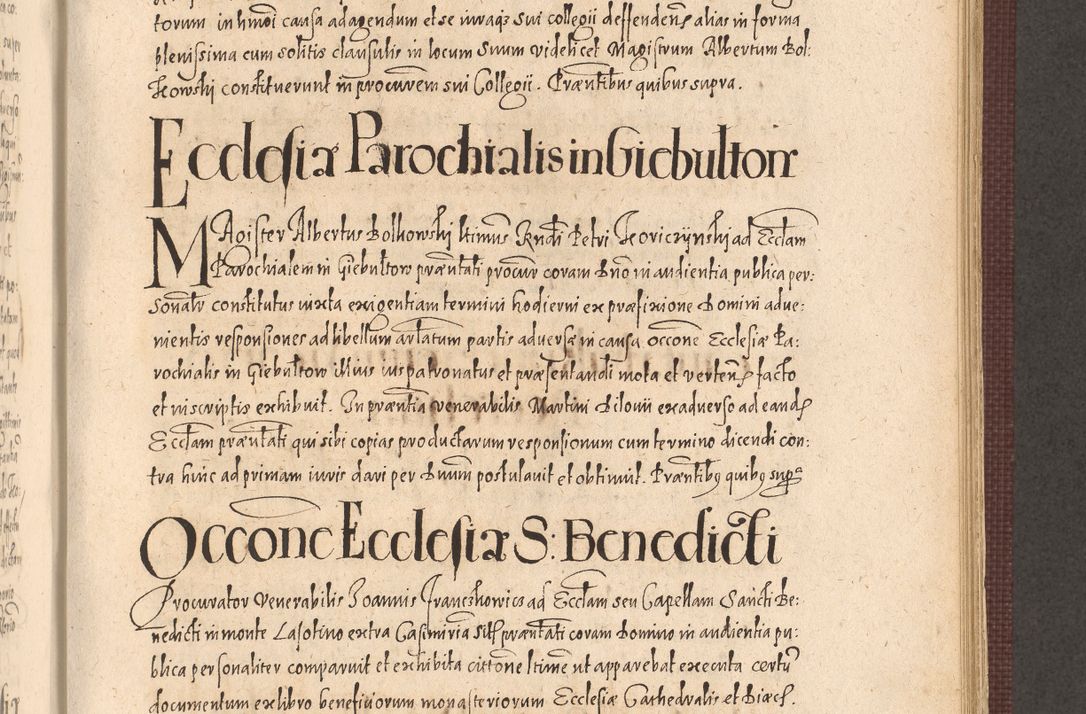 torum in hmoi causa ad agendum et se iuraq; sui collegii deffendend alias in forma
plenissima cum solitis clausulis in locum suum videlicet Magistrum Albertum Bol:
kowski constituerunt in procurem sui Collegii. Præntibus quibus supra.
Ecclesiæ Parochialis in Giebultow
MAgister Albertus Bolkowski ltimus Rndi Petri ad Ecclam
Parochialem in Giebultow præntati procur coram dno in audientia publica per:
sonalr constitutus iuxta exigentiam termini hodierni ex præfixione Domini adue:
nientis responsiones ad libellum arlatum partis adversæ in causa occone Ecclesiæ Pa:
rochialis in Giebultow illius iuspatronatus et præsentandi mota et verten facto
et in scriptis exhibuit. In præntia venerabilis Martini exadverso ad eand
Ecclam præntati qui sibi copias productarum responsionum cum termino dicendi con:
tra hinc ad primam iuris dari per Dnum postulavit et obtinuit. Præntibq quibq supra
Occone Ecclesiæ S: Benedicti
Procurator Venerabilis Joannis Franczkowicz ad Ecclam seu Capellam Sancti Be:
nedicti in monte Lasotino extra Casimiriam præntati coram Domino in audientia pu:
blica personaliter comparuit et exhibita cittone ltime ut apparebat executa certu
documentum ex libro beneficiorum monasteriorum Ecclesiæ Cathedralis et Diæc.